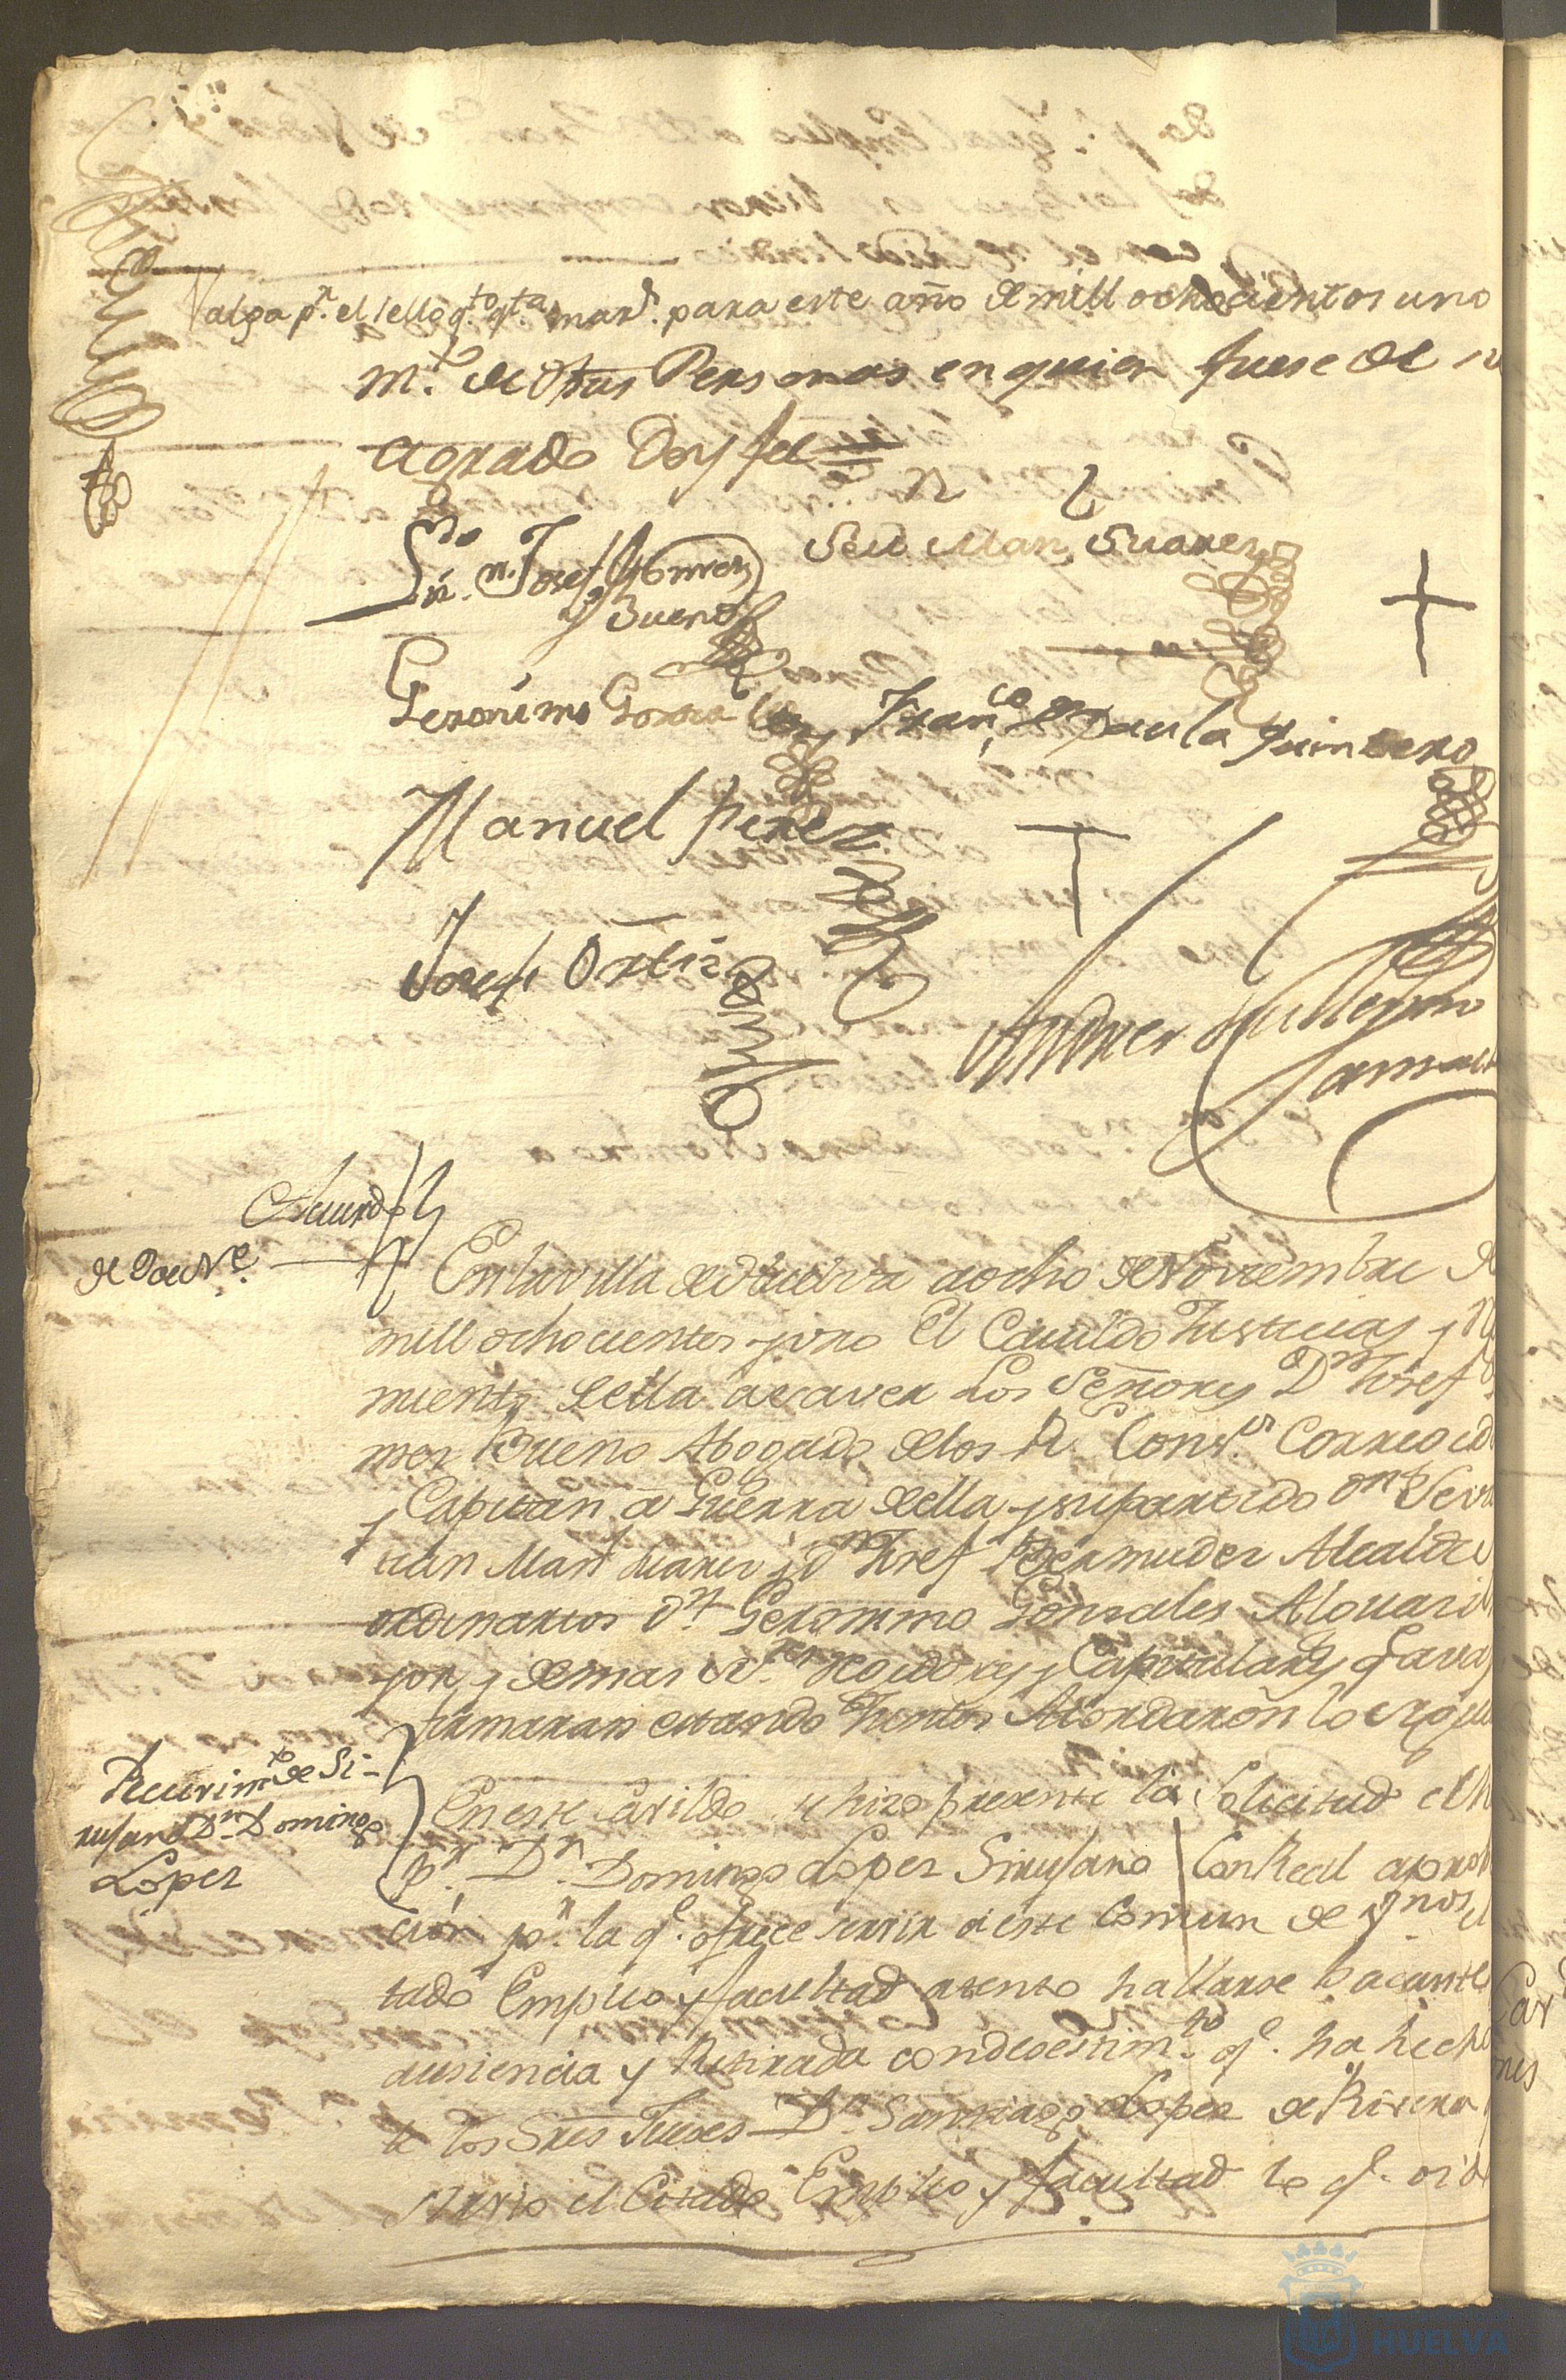 Valga pr. el sello q.to qta mard. para este año de mill ochocientos uno
m.to de otras Personas en quien fuese de su
agrado Doy fee
Ldo Dn. Josef Gomez
y Bueno
Sen Man Suarez
Geronimo Gonza Franco de Paula Quintero
Manuel Perez
Josef Ortiz
Andres Guillermo
Camacho
Acuerdo
En la villa de Huelva a ocho de Noviembre de
mill ochocientos y uno El Cavildo Justicia y R
miento de ella a saver Los Señores Dn Josef
mez Bueno Abogado de los R. Cons.s Corregid
y Capitan a Guerra de ella y su partido Dn Seva
tian Man Suarez y Dn Josef Bermudez Alcaldes
ordinarios Dn Geronimo Gonzales Alguacil
yor, y demas Sres. Regidores y Capitulares q avajo
firmaran estando Juntos Acordaron lo sigui
Recivim.to de Si-
rujano Dn Domingo
Lopez
En este Cavildo se hizo presente la Solicitud el h
pr. Dn. Domingo Lopez Sirujano Con Real aprob
ción pr. la q. ofrece servir a este Comun de Vnos. el
tado Empleo y facultad atento hallarse bacante
ausiencia y Retirada con desestim.to q. ha hecho
te los Sres Jueses Dn Santiago Lopez de Rivera
sirvio el Citado Empleo y facultad lo q. oid
HUELVA